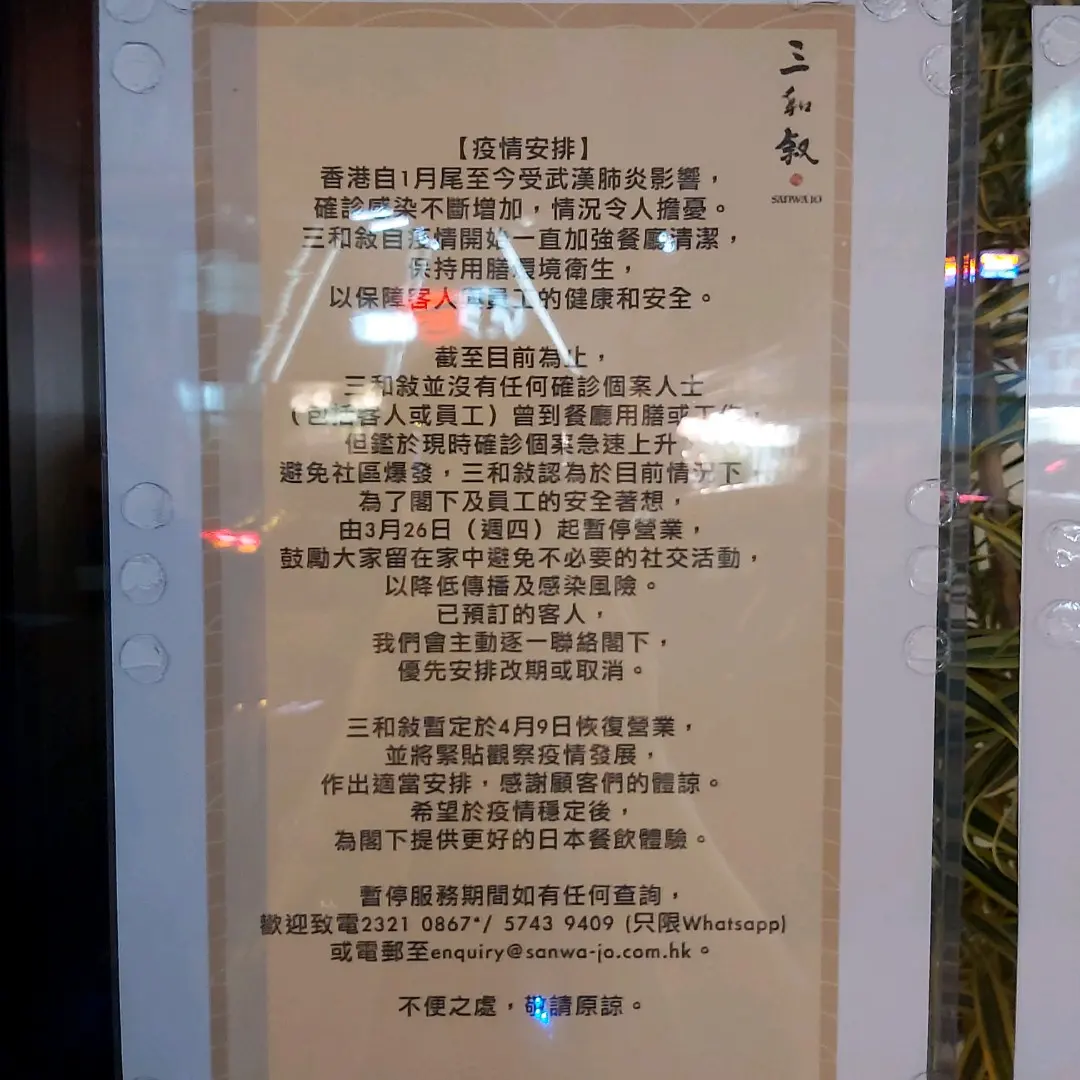 三和敍
SANWA JO
【疫情安排】
香港自1月尾至今受武漢肺炎影響，
確診感染不斷增加，情況令人擔憂。
三和敍自疫情開始一直加強餐廳清潔，
保持用膳環境衛生，
以保障客人與員工的健康和安全。
截至目前為止，
三和敍並沒有任何確診個案人士
（包括客人或員工）曾到餐廳用膳或工作，
但鑑於現時確診個案急速上升，
避免社區爆發，三和敍認為於目前情況下，
為了閣下及員工的安全著想，
由3月26日（週四）起暫停營業，
鼓勵大家留在家中避免不必要的社交活動，
以降低傳播及感染風險。
已預訂的客人，
我們會主動逐一聯絡閣下，
優先安排改期或取消。
三和敍暫定於4月9日恢復營業，
並將緊貼觀察疫情發展，
作出適當安排，感謝顧客們的體諒。
希望於疫情穩定後，
為閣下提供更好的日本餐飲體驗。
暫停服務期間如有任何查詢，
歡迎致電2321 0867*/ 5743 9409 (只限Whatsapp)
或電郵至enquiry@sanwa-jo.com.hk。
不便之處，敬請原諒。